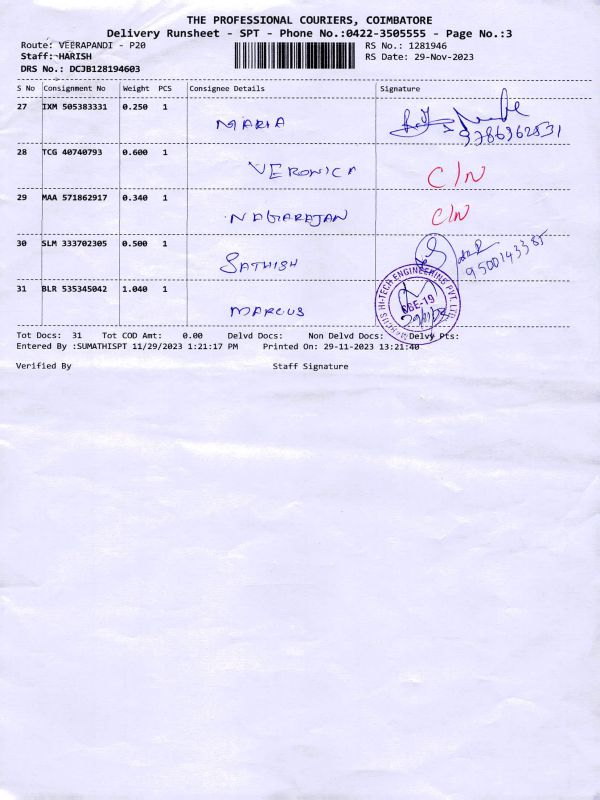 THE PROFESSIONAL COURIERS, COIMBATORE
Delivery Runsheet - SPT - Phone No.:0422-3505555 - Page No.:3
Route: VEERAPANDI - P20
RS No.: 1281946
Staff: HARISH
RS Date: 29-Nov-2023
DRS No.: DCJB128194603
S No Consignment No Weight PCS Consignee Details Signature
27 IXM 505383331 0.250 1
MARIA
9786962531
28 TCG 40740793 0.600 1
VERONICA C/N
29 MAA 571862917 0.340 1
NAGARAJAN C/N
30 SLM 333702305 0.500 1
SATHISH
9500143385
31 BLR 535345042 1.040 1
MARCUS
MARCUS HI-TECH ENGINEERING PVT. LTD.
CBE-19
Tot Docs: 31 Tot COD Amt: 0.00 Delvd Docs: Non Delvd Docs: Delvy Pts:
Entered By :SUMATHISPT 11/29/2023 1:21:17 PM Printed On: 29-11-2023 13:21:40
Verified By Staff Signature